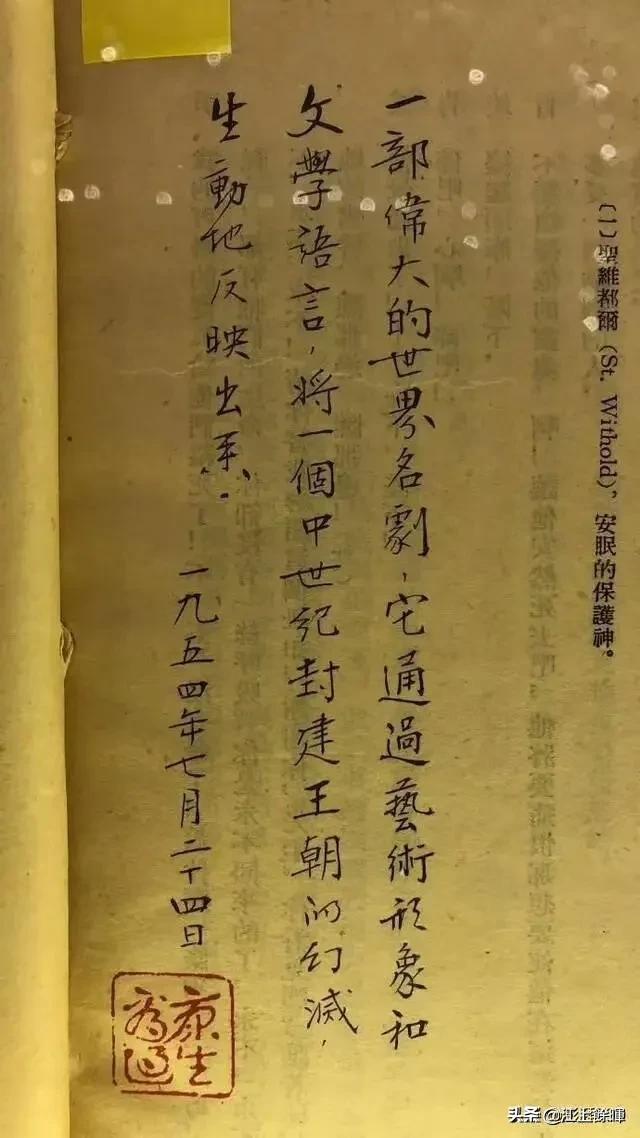 〔一〕聖維都爾（St. Withold），安眠的保護神。
一部偉大的世界名劇，它通過藝術形象和
文學語言，將一個中世紀封建王朝的幻滅，
生動地反映出來。
一九五四年七月二十四日
康生
看過
头条